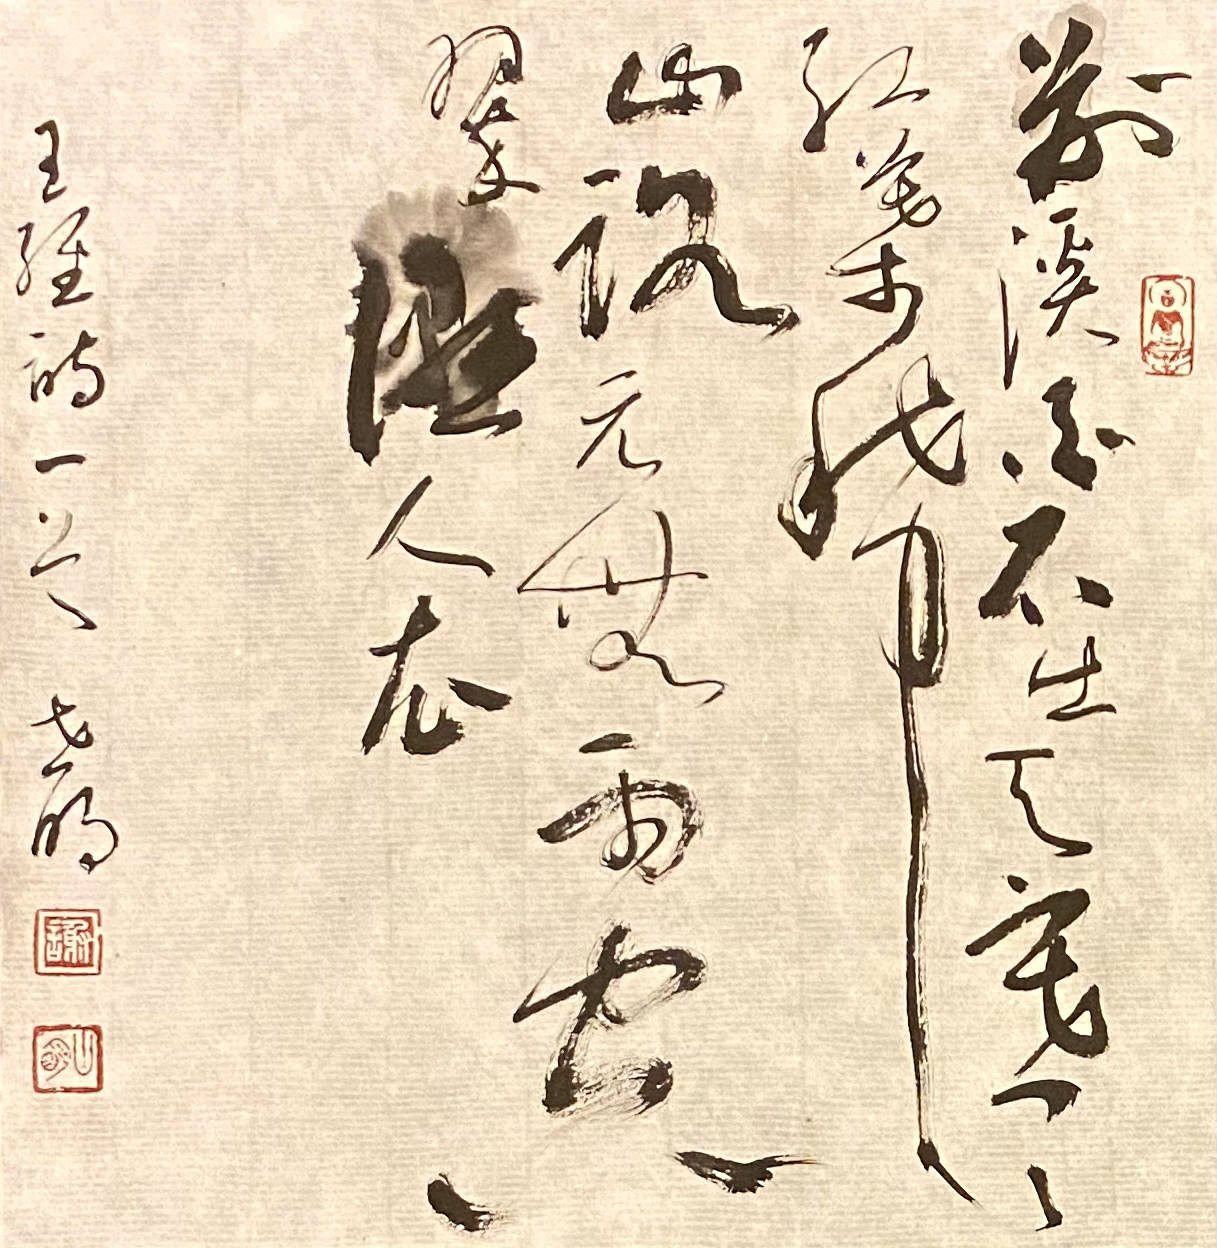 荊溪白石出天寒
紅葉稀
山路元無雨空
翠濕人衣
王維詩一首 老明
謝
山明